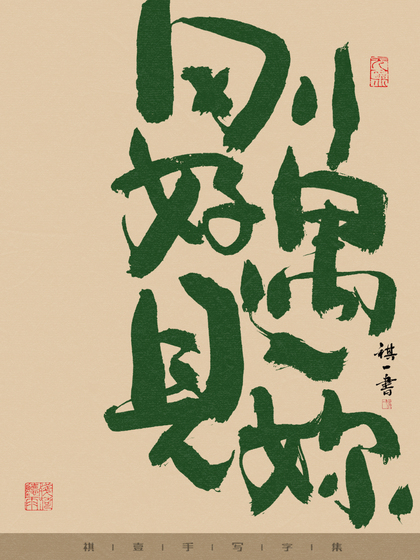 刚好遇見妳
祺一書
祺|壹|手|写|字|集